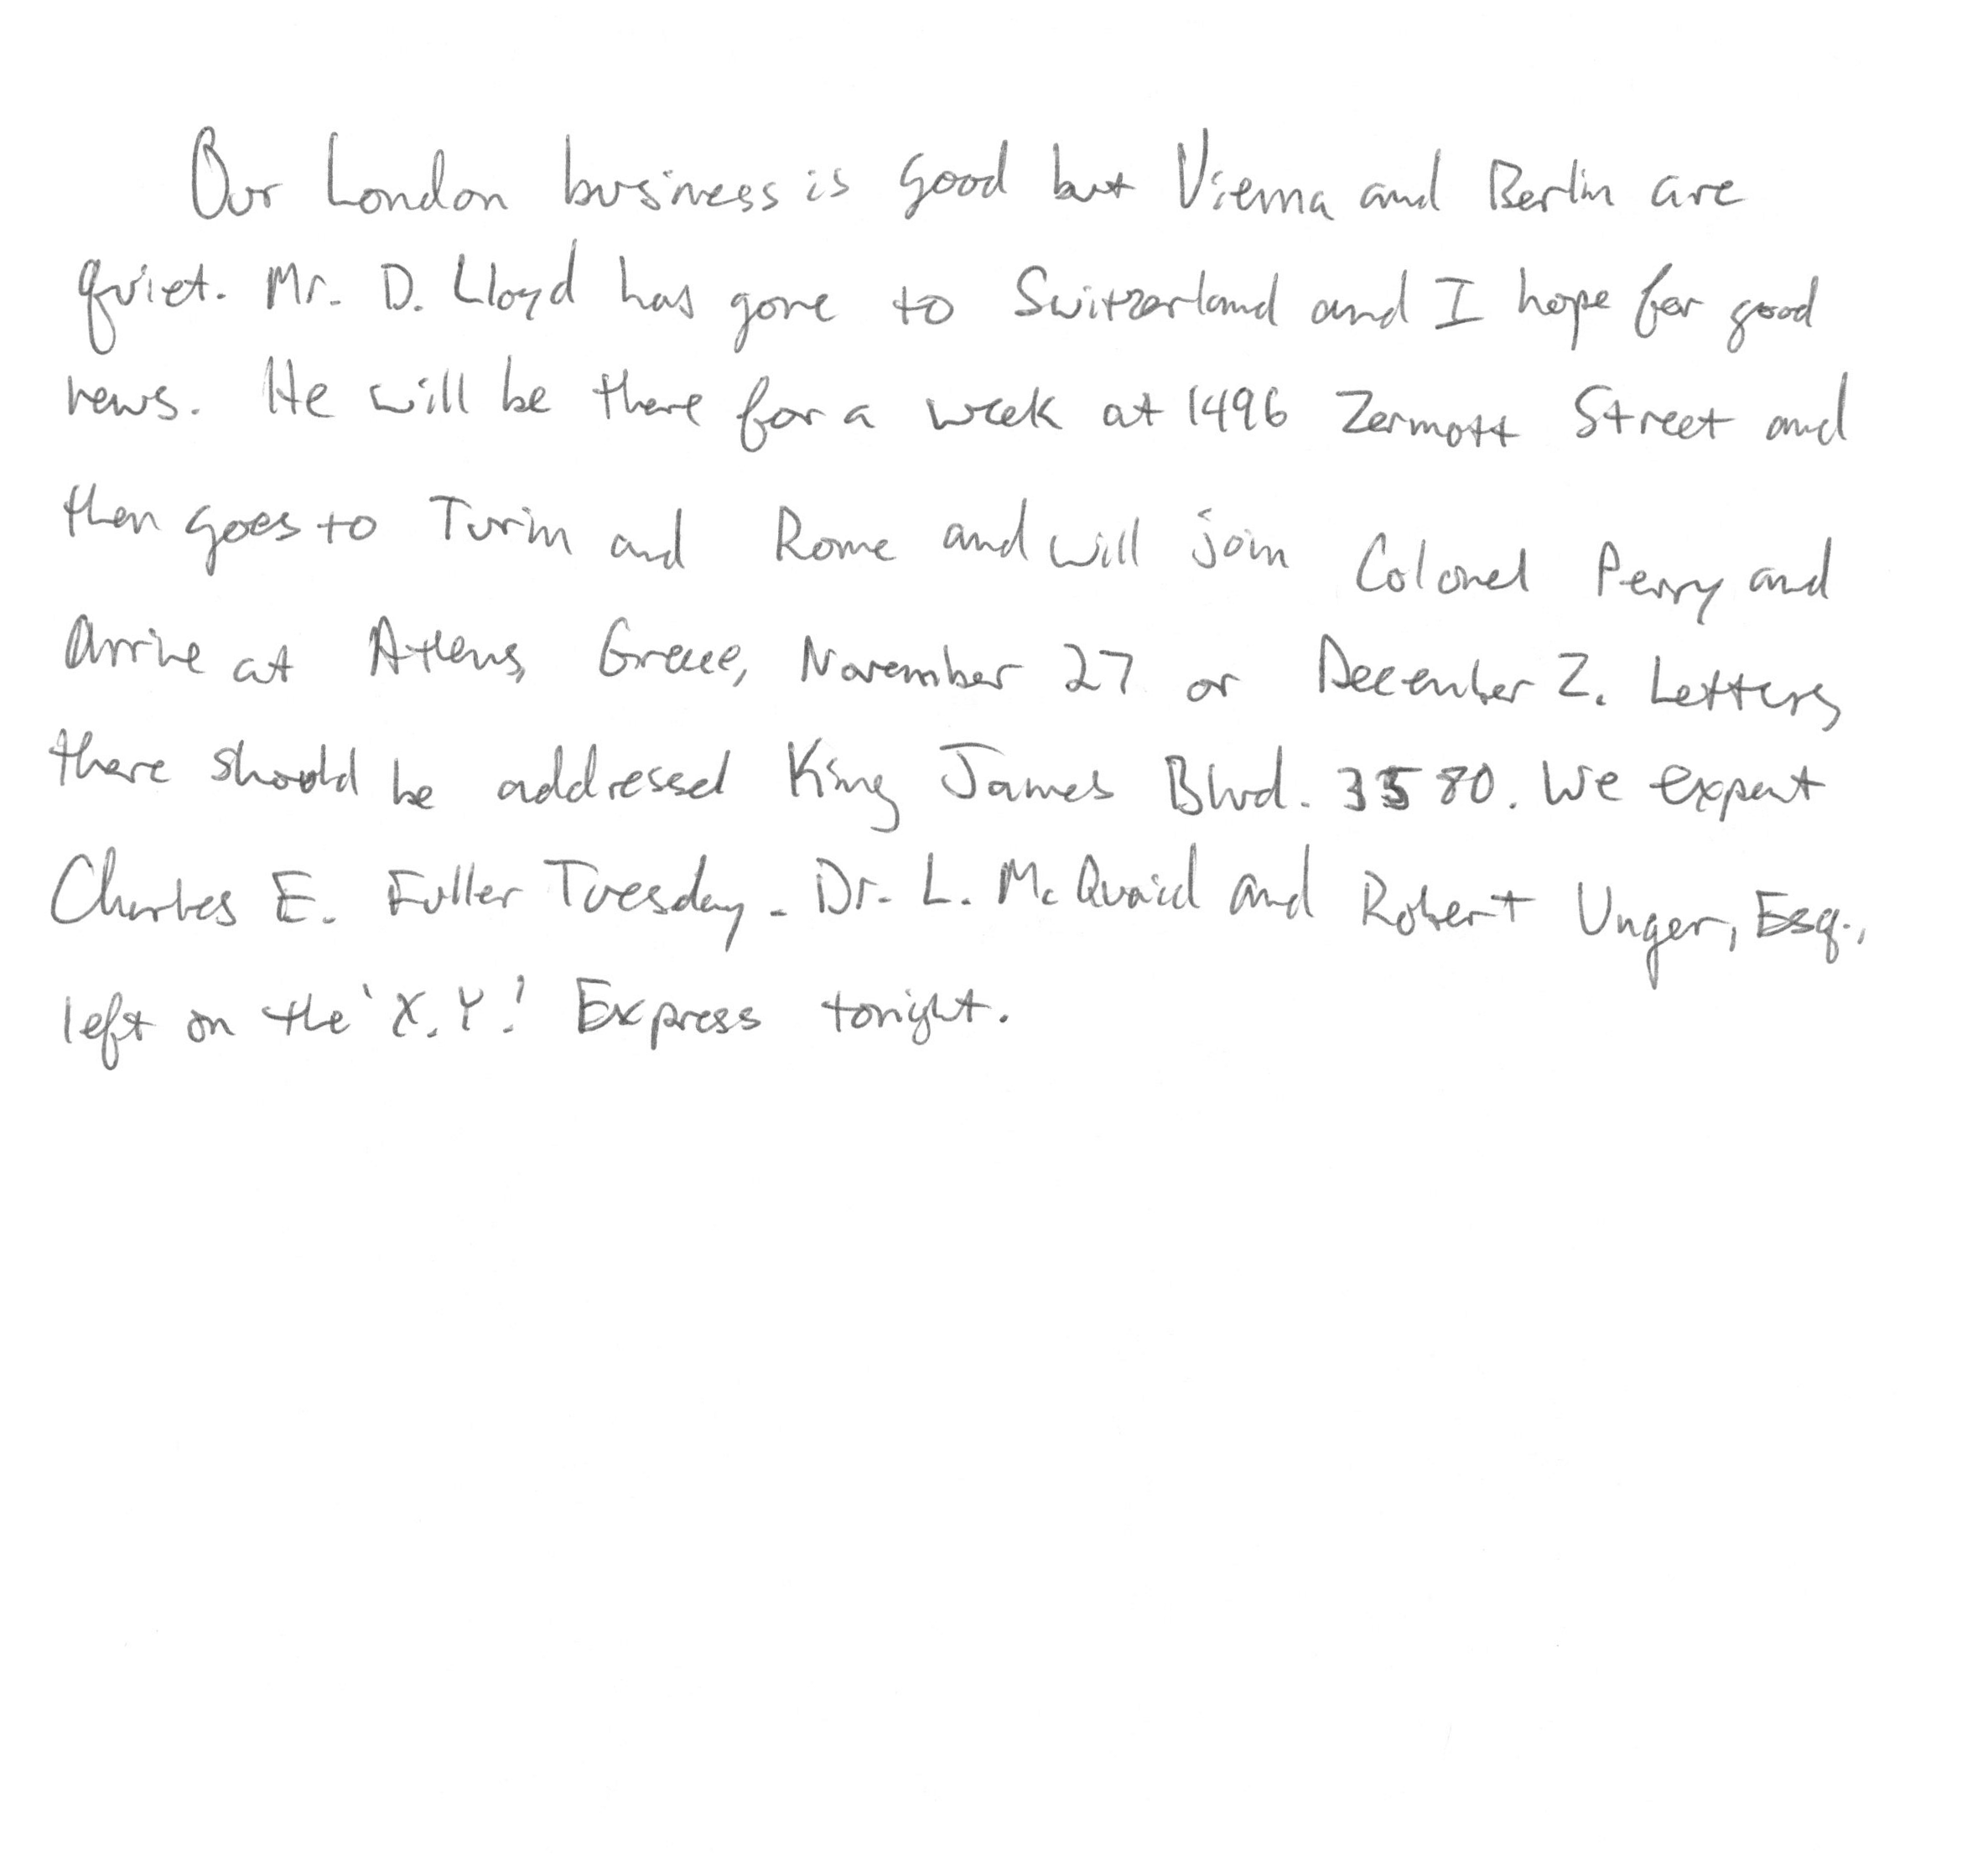 Our London business is good but Vienna and Berlin are
quiet. Mr. D. Lloyd has gone to Switzerland and I hope for good
news. He will be there for a week at 1496 Zermott Street and
then goes to Turin and Rome and will join Colonel Perry and
arrive at Athens, Greece, November 27 or December 2. Letters
there should be addressed King James Blvd. 3580. We expect
Charles E. Fuller Tuesday. Dr. L. McQuaid and Robert Unger, Esq.,
left on the 'X.Y.' Express tonight.